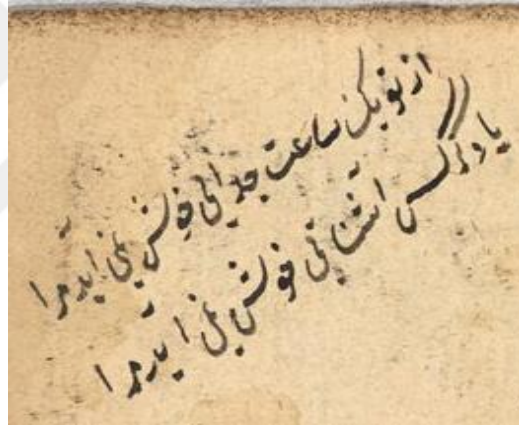 از تو یک ساعت جدایی خوش نمی آید مرا
با دگر کس آشنائی خوش نمی آید مرا